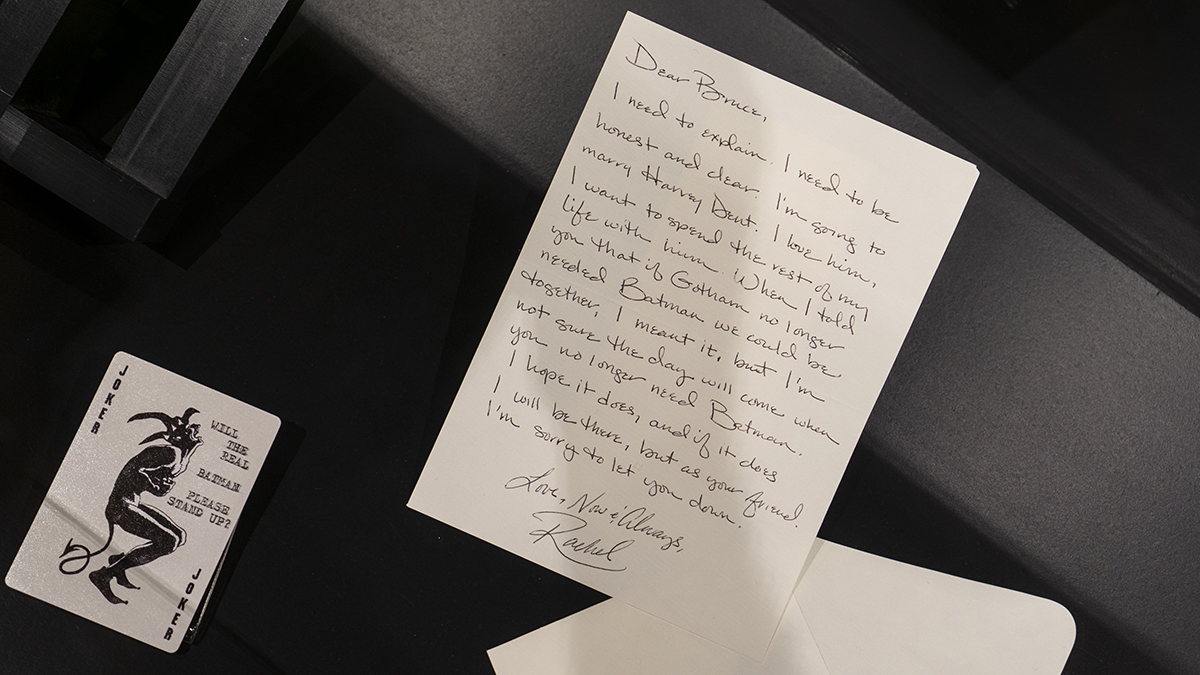 Dear Bruce,
I need to explain. I need to be
honest and clear. I'm going to
marry Harvey Dent. I love him,
I want to spend the rest of my
life with him. When I told
you that if Gotham no longer
needed Batman we could be
together, I meant it, but I'm
not sure the day will come when
you no longer need Batman.
I hope it does, and if it does
I will be there, but as your friend.
I'm sorry to let you down.
Love, Now & Always,
Rachel
JOKER
WILL
THE
REAL
BATMAN
PLEASE
STAND UP?
JOKER